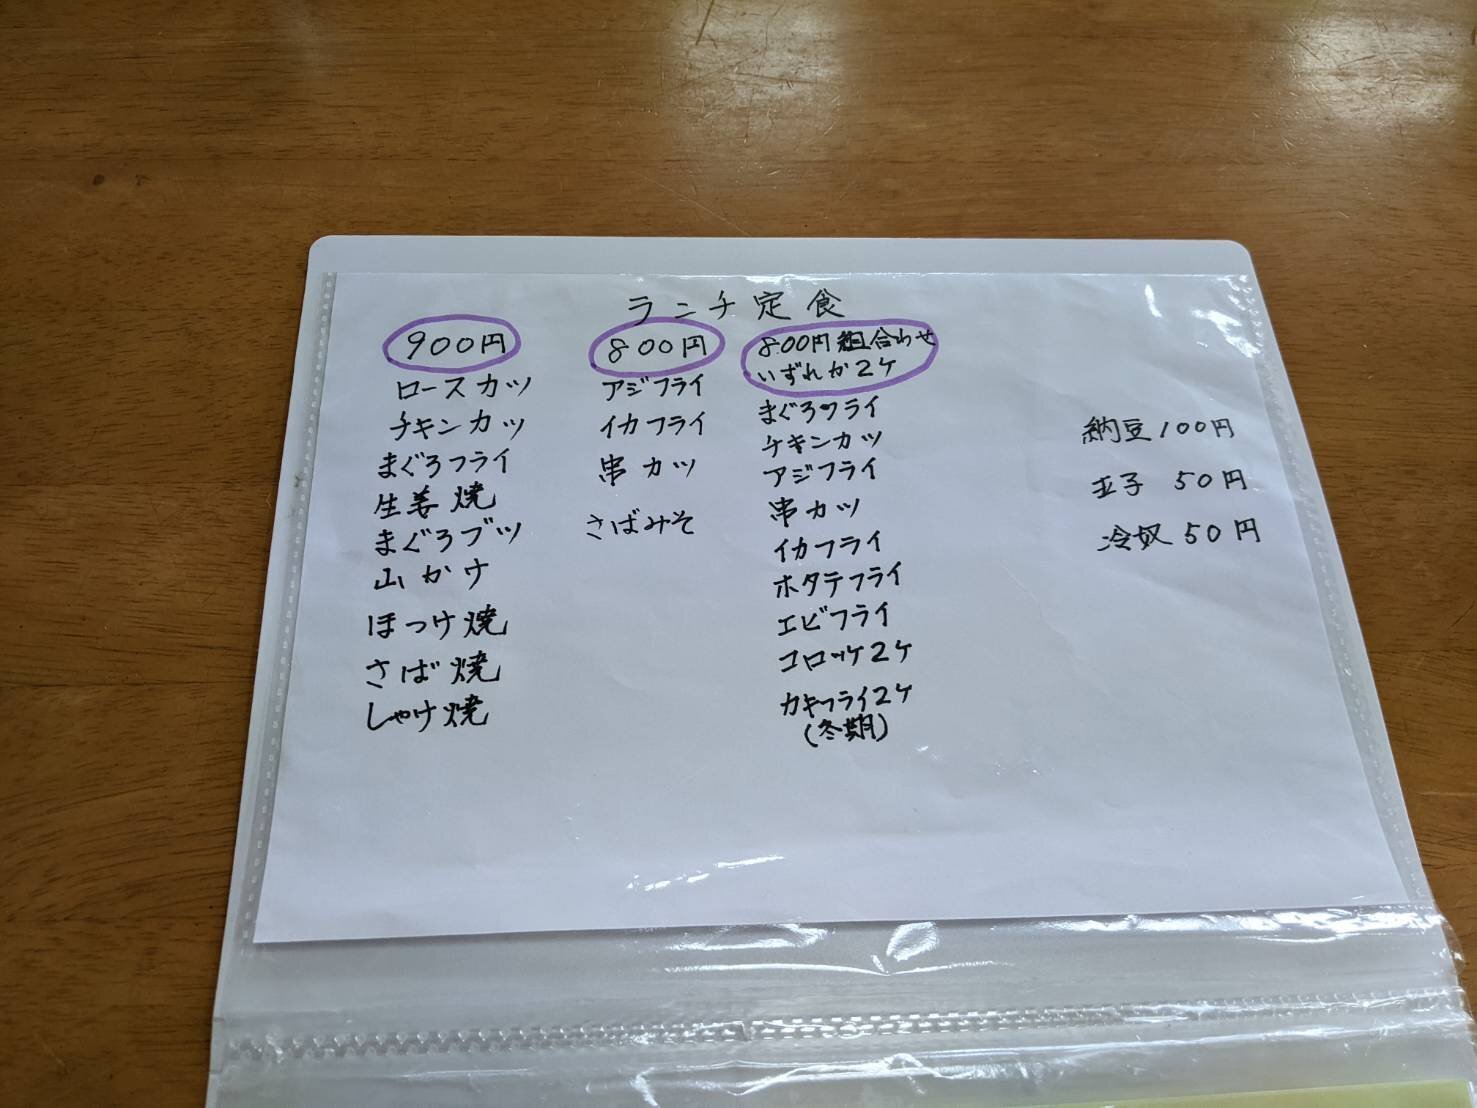 ランチ定食
900円
ロースカツ
チキンカツ
まぐろフライ
生姜焼
まぐろブツ
山かけ
ほっけ焼
さば焼
しゃけ焼
800円
アジフライ
イカフライ
串カツ
さばみそ
800円組合わせ
いずれか2ケ
まぐろフライ
チキンカツ
アジフライ
串カツ
イカフライ
ホタテフライ
エビフライ
コロッケ2ケ
カキフライ2ケ
(冬期)
納豆100円
玉子 50円
冷奴50円